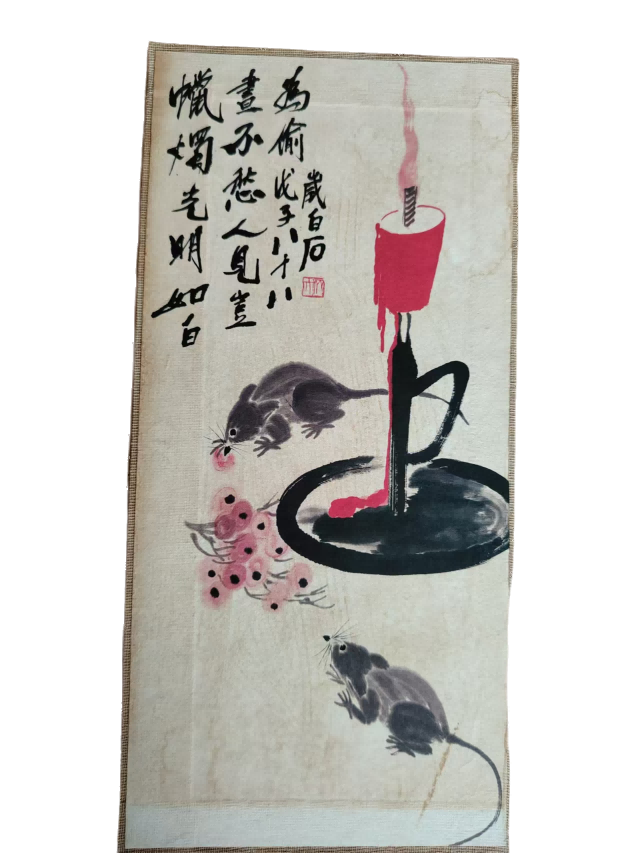 蠟燭光明如白
晝不愁人見豈
為偷戊子八十八
歲白石